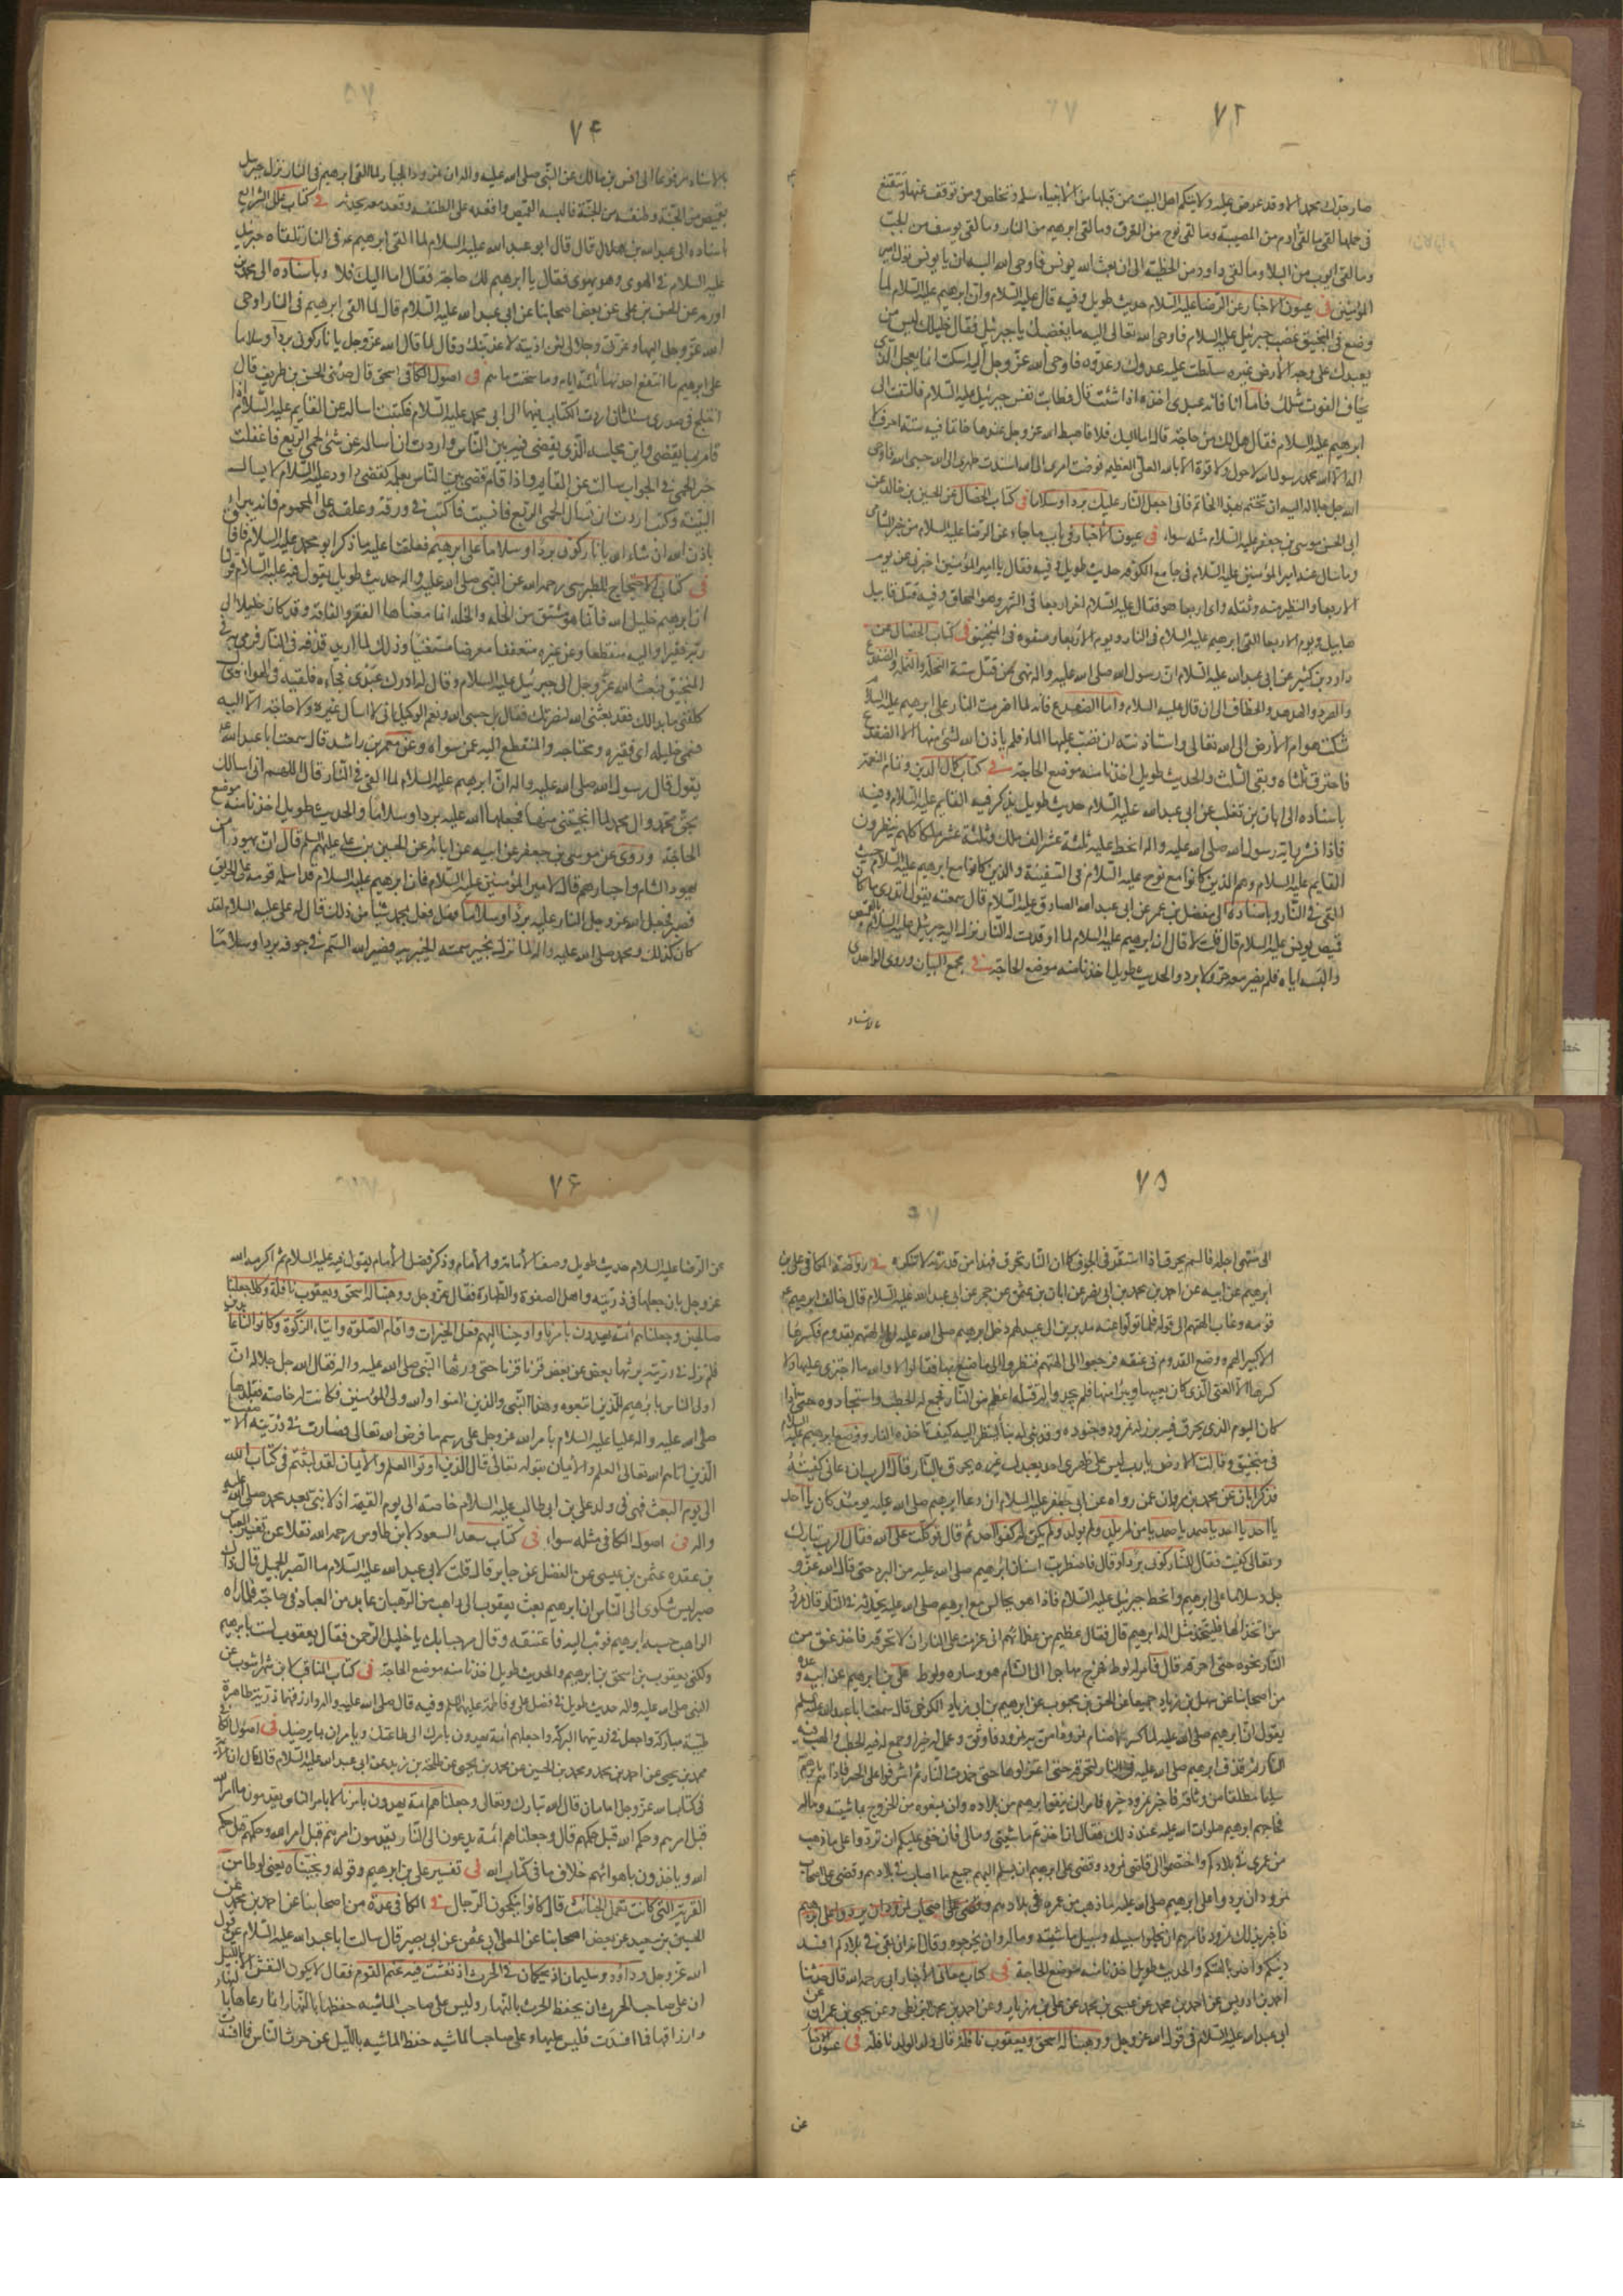 ٧٢
صار حدك بحمد الا وقد عرض عليه ولايتكم اهل البيت من قبلها من الانبياء سلم وتخلص ومن توقف عنها وتتعتع
فى حملها لقى ما لقى ادم من المصيبة وما لقى نوح من الغرق وما لقى ابرهيم من النار وما لقى يوسف من الجب
وما لقى ايوب من البلاء وما لقى داود من الخطيئة الى ان بعث الله يونس فاوحى الله اليه ان يا يونس تول امير
المؤمنين فى عيون الاخبار عن الرضا عليه السلام حديث طويل وفيه قال عليه السلام وان ابرهيم عليه السلام لما
وضع فى المنجنيق غضب جبرئيل عليه السلام فاوحى الله تعالى اليه ما يغضبك يا جبرئيل فقال خليلك ليس من
يعبدك على وجه الارض غيره سلطت عليه عدوك وعدوه فاوحى الله عز وجل اليه اسكت انما يعجل الذى
يخاف الفوت مثلك فاما انا فانه عبدى اخذه اذا شئت قال فطابت نفس جبرئيل عليه السلام فالتفت الى
ابرهيم عليه السلام فقال هل لك من حاجة قال اما اليك فلا فاهبط الله عز وجل عندها خاتما فيه ستة احرف لا
اله الا الله محمد رسول الله لا حول ولا قوة الا بالله العلى العظيم فوضت امرى الى الله اسندت ظهرى الى الله حسبى الله فاوحى
الله جل جلاله اليه ان تختم بهذا الخاتم فانى اجعل النار عليك بردا وسلاما فى كتاب الخصال عن الحسين بن خالد عن
ابى الحسن موسى بن جعفر عليه السلام مثله سواء فى عيون الاخبار فى باب ما جاء عن الرضا عليه السلام من خبر الشامى
وما سال عنه امير المؤمنين عليه السلام فى جامع الكوفه حديث طويل وفيه فقال يا امير المؤمنين اخبرنى عن يوم
الاربعا والتطير منه وثقله واى اربعا هو فقال عليه السلام اخر اربعا فى الشهر وهو المحاق وفيه قتل قابيل
هابيل ويوم الاربعا القى ابرهيم عليه السلام فى النار ويوم الاربعا وضعوه فى المنجنيق فى كتاب الخصال عن
داود بن كثير عن ابى عبد الله عليه السلام ان رسول الله صلى الله عليه واله نهى عن قتل ستة النحلة والنملة والضفدع
والصرد والهدهد والخطاف الى ان قال عليه السلام واما الضفدع فانه لما اضرمت النار على ابرهيم عليه السلام
شكت هوام الارض الى الله تعالى واستاذنته ان تصب عليها الماء فلم ياذن الله لشئ منها الا الضفدع
فاحترق ثلثاه وبقى الثلث والحديث طويل اخذنا منه موضع الحاجة فى كتاب كمال الدين وتمام النعمة
باسناده الى ابان بن تغلب عن ابى عبد الله عليه السلام حديث طويل يذكر فيه القايم عليه السلام وفيه
فاذا نشر راية رسول الله صلى الله عليه واله انحط عليه ثلثة عشر الف ملك وثلثة عشر ملكا كلهم ينظرون
القايم عليه السلام وهم الذين كانوا مع نوح عليه السلام فى السفينة والذين كانوا مع ابرهيم عليه السلام حيث
القى فى النار وباسناده الى مفضل بن عمر عن ابى عبد الله الصادق عليه السلام قال سمعته يقول اتدرى ما كان
قميص يوسف عليه السلام قال قلت لا قال ان ابرهيم عليه السلام لما اوقدت له النار نزل اليه جبرئيل عليه السلام بالقميص
والبسه اياه فلم يضر معه حر ولا برد والحديث طويل اخذنا منه موضع الحاجة فى مجمع البيان وروى الواحدى
بالاسناد
٧٤
بالاسناد مرفوعا الى انس بن مالك عن النبى صلى الله عليه واله ان نمرود الجبار لما القى ابرهيم فى النار نزل جبرئيل
بقميص من الجنة وطنفسة من الجنة فالبسه القميص واقعده على الطنفسه وقعد معه يحدثه فى كتاب علل الشرايع
باسناده الى عبد الله بن هلال قال قال ابو عبد الله عليه السلام لما القى ابرهيم عه فى النار تلقاه جبرئيل
عليه السلام فى الهوى وهو يهوى فقال يا ابرهيم لك حاجة فقال اما اليك فلا وباسناده الى محمد بن
اورمه عن الحسن بن على عن بعض اصحابنا عن ابى عبد الله عليه السلام قال لما القى ابرهيم فى النار اوحى
الله عز وجل اليها وعزتى وجلالى لئن اذيته لاعذبنك وقال لما قال الله عز وجل يا نار كونى بردا وسلاما
على ابرهيم ما انتفع احد بها ثلثة ايام وما سخنت ماءهم فى اصول الكافى اسحق قال حدثنى الحسن بن ظريف قال
اختلج فى صدرى مسئلتان اردت الكتاب فيهما الى ابى محمد عليه السلام فكتبت اساله عن القايم عليه السلام اذا
قام بما يقضى واين مجلسه الذى يقضى فيه بين الناس واردت ان اساله عن شئ لحمى الربع فاغفلت
خبر الحمى فجاء الجواب سالت عن القايم واذا قام قضى بين الناس بعلمه كقضى داود عليه السلام لا يسال
البينة وكنت اردت ان تسال لحمى الربع فانسيت فاكتب فى ورقة وعلقه على المحموم فانه يبرأ
باذن الله ان شاء الله يا نار كونى بردا وسلاما على ابرهيم فعلقنا عليه ما ذكر ابو محمد عليه السلام فافاق
فى كتاب الاحتجاج للطبرسى رحمه الله عن النبى صلى الله عليه واله حديث طويل يقول فيه عليه السلام قولنا
ان ابرهيم خليل الله فانما هو مشتق من الخلة والخلة انما معناها الفقر والفاقة وقد كان خليلا الى
ربه فقيرا واليه منقطعا وعن غيره متعففا معرضا مستغنيا وذلك لما اريد قذفه فى النار فرمى به فى
المنجنيق فبعث الله عز وجل الى جبرئيل عليه السلام وقال له ادرك عبدى فجاءه فلقيه فى الهواء فقال
كلفنى ما بدا لك فقد بعثنى الله لنصرتك فقال بل حسبى الله ونعم الوكيل انى لا اسال غيره ولا حاجة الا اليه
فسمى خليله اى فقيره ومحتاجه والمنقطع اليه عمن سواه وعن معمر بن راشد قال سمعت ابا عبد الله عه
يقول قال رسول الله صلى الله عليه واله ان ابرهيم عليه السلام لما القى فى النار قال اللهم انى اسالك
بحق محمد وال محمد لما انجيتنى منها فجعلها الله عليه بردا وسلاما والحديث طويل اخذنا منه موضع
الحاجة وروى عن موسى بن جعفر عن ابيه عن ابائه عن الحسين بن على عليهم السلم قال ان يهوديا من
يهود الشام واحبارهم قال لامير المؤمنين عليه السلام فان ابرهيم عليه السلام قد اسلمه قومه على الحريق
فصبر فجعل الله عز وجل النار عليه بردا وسلاما فهل فعل بمحمد شيئا من ذلك قال له على عليه السلام لقد
كان كذلك ومحمد صلى الله عليه واله لما نزل بخيبر سمته الخيبرية فصير الله السم فى جوفه بردا وسلاما
٧٥
الى منتهى اجله فالسم يحرق اذا استقر فى الجوف كما ان النار تحرق فهذا من قدرته لا تنكره فى روضة الكافى على بن
ابرهيم عن ابيه عن احمد بن محمد بن ابى نصر عن ابان بن عثمن عن حجر عن ابى عبد الله عليه السلام قال خالف ابرهيم عه
قومه وعاب الهتهم الى قوله فلما تولوا عنه مدبرين الى عيد لهم دخل ابرهيم صلى الله عليه الى الهتهم بقدوم فكسرها
الا كبيرا لهم ووضع القدوم فى عنقه فرجعوا الى الهتهم فنظروا الى ما صنع بها فقالوا لا والله ما اجترى عليها ولا
كسرها الا الفتى الذى كان يعيبها ويبرأ منها فلم يجدوا له قتلة اعظم من النار فجمع له الحطب واستجادوه حتى اذا
كان اليوم الذى يحرق فيه برز له نمرود وجنوده وقد بنى له بناء لينظر اليه كيف تاخذه النار ووضع ابرهيم عليه السلام
فى منجنيق وقالت الارض يا رب ليس على ظهرى احد يعبدك غيره يحرق بالنار قال الرب ان دعانى كفيته
فذكر ابان عن محمد بن مروان عمن رواه عن ابى جعفر عليه السلام ان دعاء ابرهيم صلى الله عليه يومئذ كان يا احد
يا احد يا احد يا صمد يا صمد يا من لم يلد ولم يولد ولم يكن له كفوا احد ثم قال توكلت على الله فقال الرب تبارك
وتعالى كفيت فقال للنار كونى بردا وقال فاضطربت اسنان ابرهيم صلى الله عليه من البرد حتى قال الله عز و
جل وسلاما على ابرهيم وانحط جبرئيل عليه السلام فاذا هو جالس مع ابرهيم صلى الله عليه يحدثه فى النار قال نمرود
من اتخذ الها فليتخذ مثل اله ابرهيم قال فقال عظيم من عظمائهم انى عزمت على النار ان لا تحرقه فاخذ عنق من
النار نحوه حتى احرقه قال فامن له لوط فخرج مهاجرا الى الشام هو وساره ولوط على بن ابرهيم عن ابيه وعدة
من اصحابنا عن سهل بن زياد جميعا عن الحسن بن محبوب عن ابرهيم بن ابى زياد الكوخى قال سمعت ابا عبد الله عليه السلم
يقول ان ابرهيم صلى الله عليه لما كسر اصنام نمرود امر به نمرود فاوثق وعمل له حيرا وجمع له فيه الحطب والهب فيه
النار ثم قذف ابرهيم صلى الله عليه فى النار لتحرقه ثم اعتزلوها حتى خمدت النار ثم اشرفوا على الحير فاذا هم بابرهيم
سليما مطلقا من وثاقه فاخبر نمرود خبره فامر ان ينفوا ابرهيم من بلاده وان يمنعوه من الخروج بماشيته وماله
فحاجهم ابرهيم صلوات الله عليه عند ذلك فقال ان اخذتم ماشيتى ومالى فان حقى عليكم ان تردوا على ما ذهب
من عمرى فى بلادكم واختصموا الى قاضى نمرود وقضى على ابرهيم ان يسلم اليهم جميع ما اصاب فى بلادهم وقضى على اصحاب
نمرود ان يردوا على ابرهيم صلى الله عليه ما ذهب من عمره فى بلادهم وقضى على اصحاب نمرود ان يردوا على ابرهيم
فاخبر بذلك نمرود فامرهم ان يخلوا سبيله وسبيل ماشيته وماله وان يخرجوه وقال انه ان بقى فى بلادكم افسد
دينكم واضر بالهتكم والحديث طويل اخذنا منه موضع الحاجة فى كتاب معانى الاخبار ابى رحمه الله قال حدثنا
احمد بن ادريس عن احمد بن محمد بن عيسى عن على بن مهزيار وعن احمد بن محمد البزنطى وعن يحيى بن عمران عن
ابى عبد الله عليه السلام فى قول الله عز وجل ووهبنا له اسحق ويعقوب نافلة قال ولد الولد نافلة فى عيون الاخبار
عن
٧۶
عن الرضا عليه السلام حديث طويل وصف الامامة والامام وذكر فضل الامام يقول فيه عليه السلام ثم اكرمه الله
عز وجل بان جعلها فى ذريته واهل الصفوة والطهارة فقال عز وجل ووهبنا له اسحق ويعقوب نافلة وكلا جعلنا
صالحين وجعلناهم ائمة يهدون بامرنا واوحينا اليهم فعل الخيرات واقام الصلوة وايتاء الزكوة وكانوا لنا عابدين
فلم تزل فى ذريته يرثها بعض عن بعض قرنا قرنا حتى ورثها النبى صلى الله عليه واله فقال الله جل جلاله ان
اولى الناس بابرهيم للذين اتبعوه وهذا النبى والذين امنوا والله ولى المؤمنين فكانت له خاصة فقلدها
صلى الله عليه واله عليا عليه السلام بأمر الله عز وجل على رسم ما فرض الله تعالى فصارت فى ذريته الاصفياء
الذين اتاهم الله تعالى العلم والايمان بقوله تعالى قال الذين اوتوا العلم والايمان لقد لبثتم فى كتاب الله
الى يوم البعث فهى فى ولد على بن ابى طالب عليه السلام خاصة الى يوم القيمة اذ لا نبى بعد محمد صلى الله عليه
واله فى اصول الكافى مثله سواء فى كتاب سعد السعود لابن طاوس رحمه الله نقلا عن تفسير ابى العباس
بن عقده عثمن بن عيسى عن الفضل عن جابر قال قلت لابى عبد الله عليه السلام ما الصبر الجميل قال ذاك
صبر ليس شكوى الى الناس ان ابرهيم بعث يعقوب الى راهب من الرهبان عابد من العباد فى حاجة فلما راه
الراهب حسبه ابرهيم فوثب اليه فاعتنقه وقال مرحبا بك يا خليل الرحمن فقال يعقوب لست بابرهيم
ولكنى يعقوب بن اسحق بن ابرهيم والحديث طويل اخذنا منه موضع الحاجة فى كتاب المناقب لابن شهر اشوب عن
النبى صلى الله عليه واله حديث طويل فى فضل على وفاطمة عليهما السلم وفيه قال صلى الله عليه واله وارزقهما ذرية طاهرة
طيبة مباركة واجعل فى ذريتهما البركة واجعلهم ائمة يهدون بامرك الى طاعتك ويامران بما يرضيك فى اصول الكافى
محمد بن يحيى عن احمد بن محمد ومحمد بن الحسين عن محمد بن يحيى عن طلحة بن زيد عن ابى عبد الله عليه السلام قال قال ان الائمة
فى كتاب الله عز وجل امامان قال الله تبارك وتعالى وجعلناهم ائمة يهدون بامرنا لا بامر الناس يقدمون ما امر الله
قبل امرهم وحكم الله قبل حكمهم قال وجعلناهم ائمة يدعون الى النار يقدمون امرهم قبل امر الله وحكمهم قبل حكم
الله وياخذون باهوائهم خلاف ما فى كتاب الله فى تفسير على بن ابرهيم وقوله ونجيناه يعنى لوطا من
القرية التى كانت تعمل الخبائث قال كانوا ينكحون الرجال فى الكافى عدة من اصحابنا عن احمد بن محمد عن
الحسين بن سعيد عن بعض اصحابنا عن المعلى ابى عثمن عن ابى بصير قال سالت ابا عبد الله عليه السلام عن قول
الله عز وجل وداود وسليمان اذ يحكمان فى الحرث اذ نفشت فيه غنم القوم فقال لا يكون النفش الا بالليل
ان على صاحب الحرث ان يحفظ الحرث بالنهار وليس على صاحب الماشية حفظها بالنهار انما رعاها بالنهار
وارزاقها فما افسدت فليس عليها وعلى صاحب الماشيه حفظ الماشيه بالليل عن حرث الناس فما افسدت